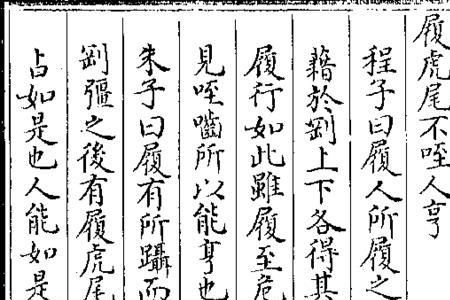 履虎尾不咥人亨
程子曰履人所履之
藉於剛上下各得其
履行如此雖履至危
見咥嚙所以能亨也
朱子曰履有所躡而
剛彊之後有履虎尾
占如是也人能如是